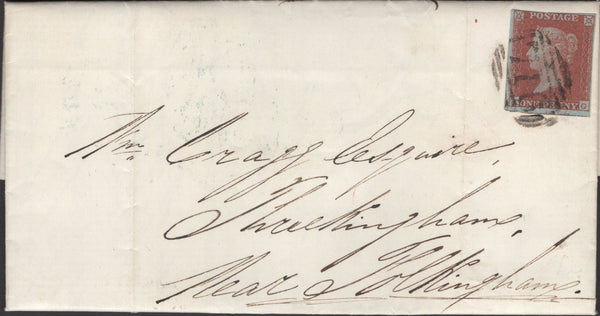 POSTAGE
ONE PENNY
G
Wm. Cragg Esquire,
Threekingham,
Near Folkingham.